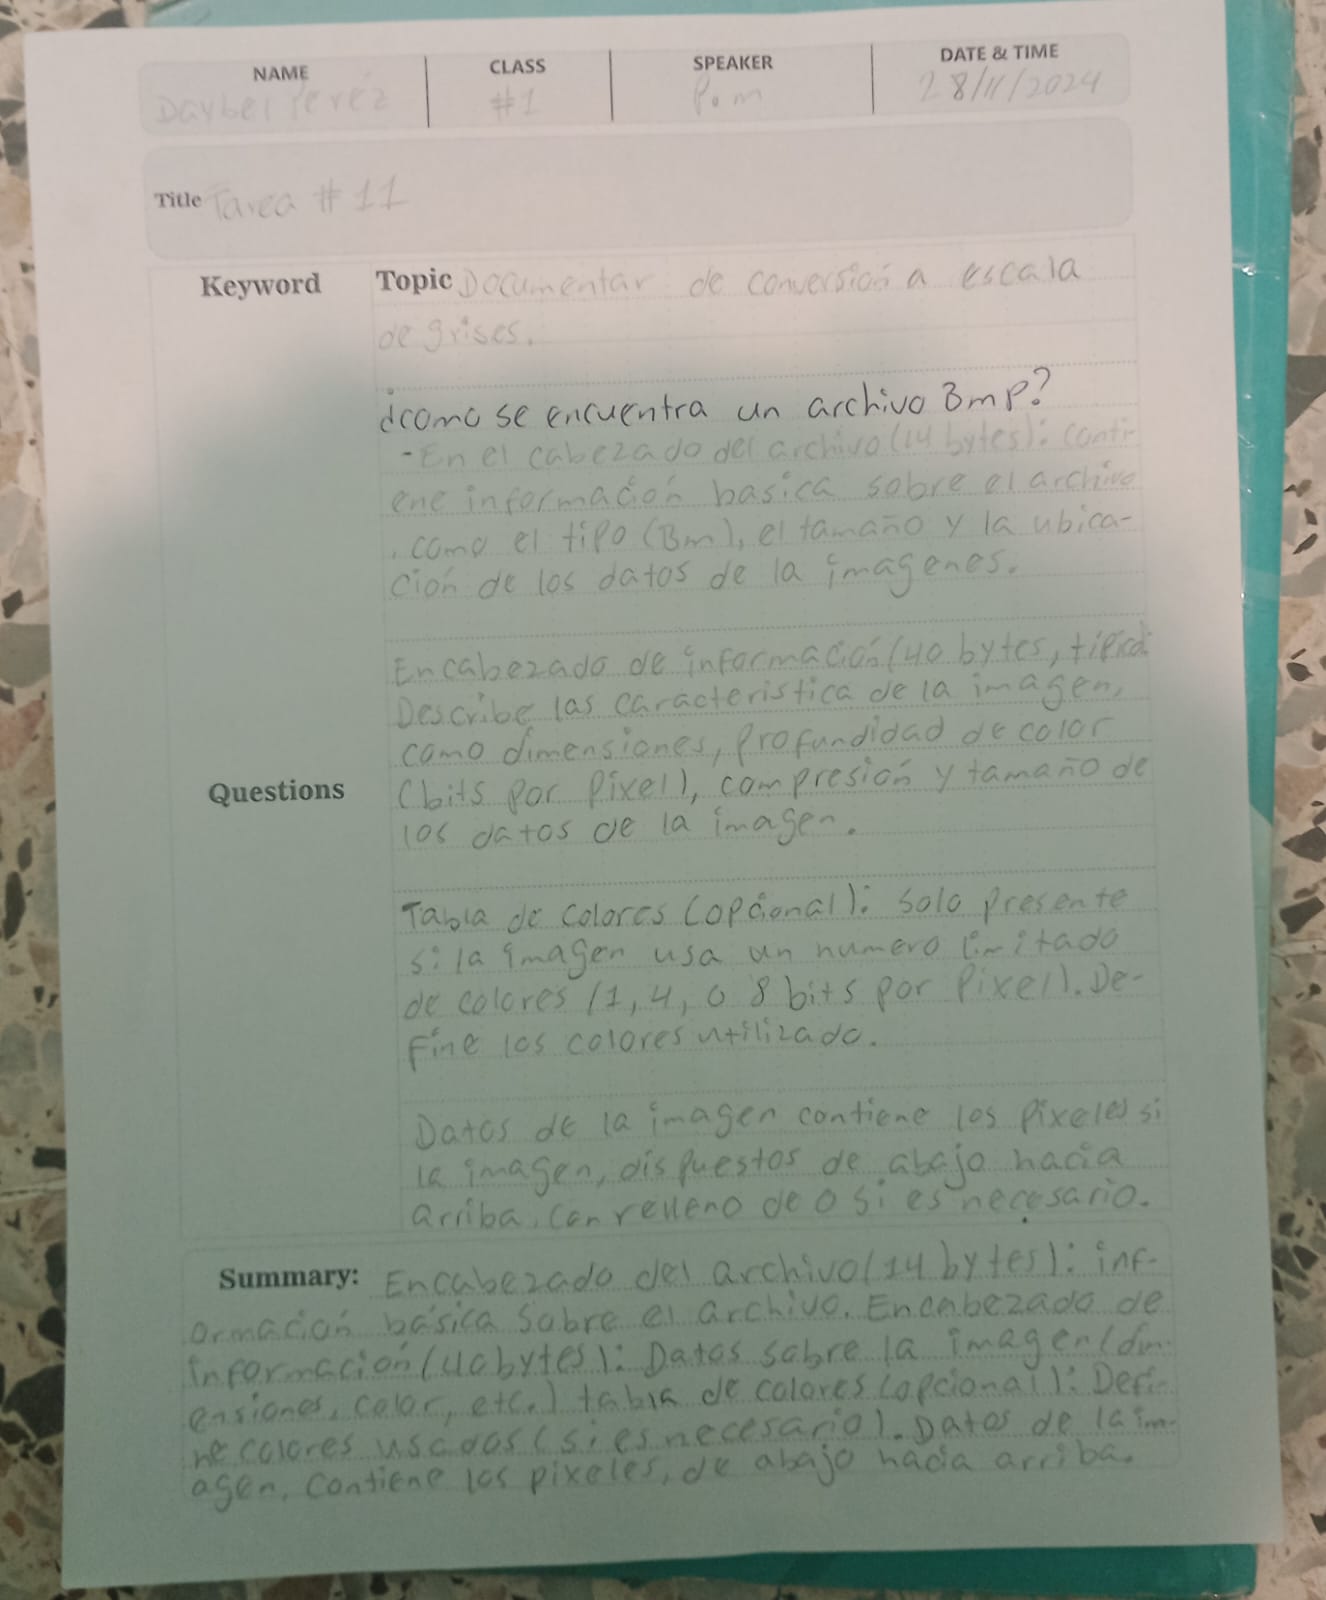 NAME CLASS SPEAKER DATE & TIME
Daybel Perez #1 P.m 28/11/2024
Title Tarea #11
Keyword Topic Documentar de conversión a escala
de grises.
¿como se encuentra un archivo Bmp?
-En el cabezado del archivo (14 bytes): conti-
ene información basica sobre el archivo
, como el tipo (Bm), el tamaño y la ubica-
ción de los datos de la imagenes.
Encabezado de información (40 bytes,
Describe las caracteristica de la imagen,
como dimensiones, profundidad de color
Questions (bits por pixel), compresión y tamaño de
los datos de la imagen.
Tabla de colores (opcional): Solo presente
si la imagen usa un numero limitado
de colores (1, 4, o 8 bits por pixel). De-
fine los colores utilizado.
Datos de la imagen contiene los pixeles si
la imagen, dispuestos de abajo hacia
arriba, con relleno de 0 si es necesario.
Summary: Encabezado del archivo (14 bytes): inf-
ormación básica sobre el archivo. Encabezado de
información (40 bytes): Datos sobre la imagen (dim-
ensiones, color, etc.) tabla de colores (opcional): Defi-
ne colores usados (si es necesario). Datos de la im-
agen, contiene los pixeles, de abajo hacia arriba.